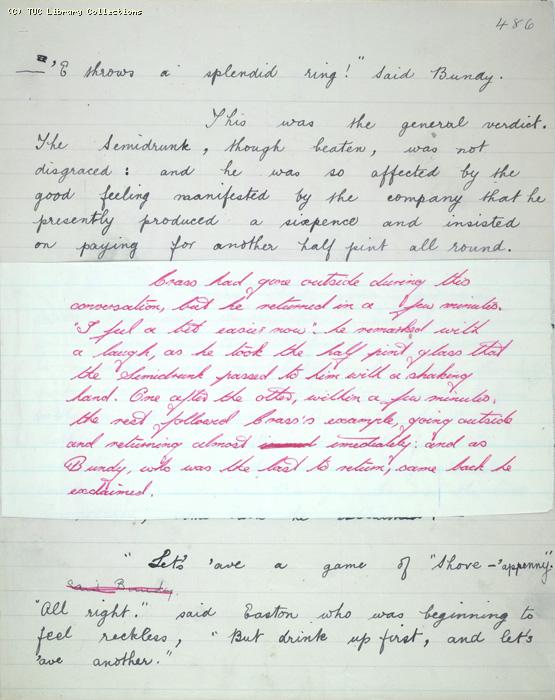 (C) TUC Library Collections
486
"'E throws a splendid ring!" said Bundy.
This was the general verdict.
The Semidrunk, though beaten, was not
disgraced: and he was so affected by the
good feeling manifested by the company that he
presently produced a sixpence and insisted
on paying for another half pint all round.
Crass had gone outside during this
conversation, but he returned in a few minutes.
'I feel a bit easier now': he remarked with
a laugh, as he took the half pint glass that
the Semidrunk passed to him with a shaking
hand. One after the other, within a few minutes,
the rest followed Crass's example, going outside
and returning almost imediately: and as
Bundy, who was the last to return, came back he
exclaimed.
"Let's 'ave a game of "Shove-'appenny".
Said Bundy.
"All right." said Easton who was beginning to
feel reckless, "But drink up first, and let's
'ave another."